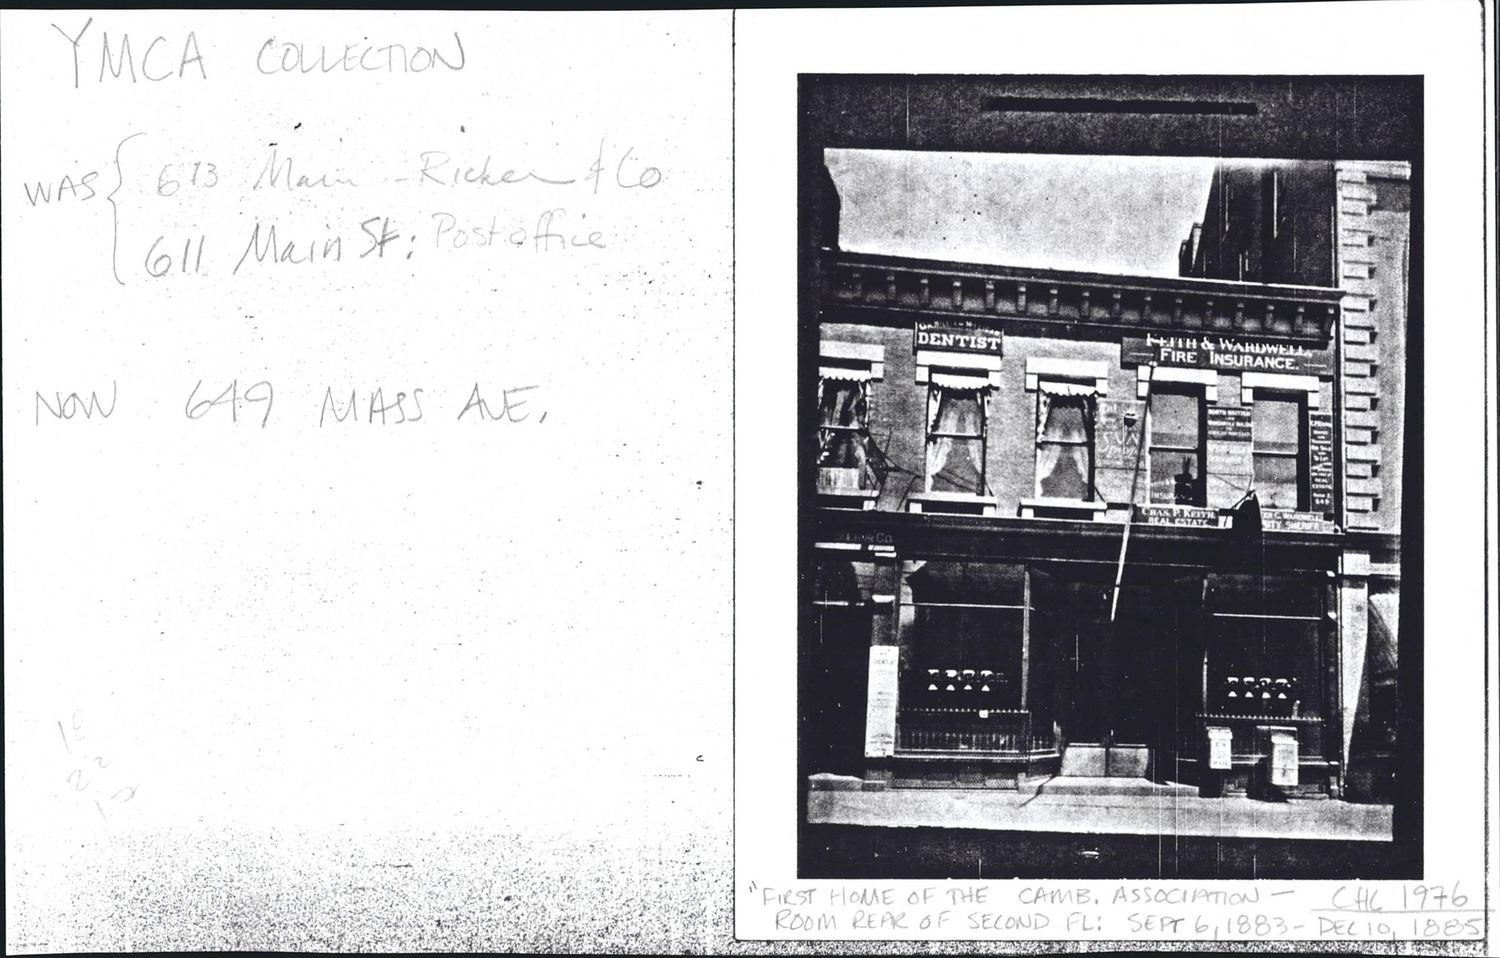 YMCA COLLECTION
WAS { 673 Main - Ricker & Co
611 Main St: Post office
NOW 649 MASS AVE.
18
22
DENTIST
KEITH & WARDWELL,
FIRE INSURANCE.
NORTH BRITISH
REAL
ESTATE
649
INSURANCE
CHAS. P. KEITH,
REAL ESTATE
C. WARDWELL
UTY SHERIFF
& CO.
"FIRST HOME OF THE CAMB. ASSOCIATION — CHC 1976
ROOM REAR OF SECOND FL: SEPT 6, 1883 - DEC 10, 1885